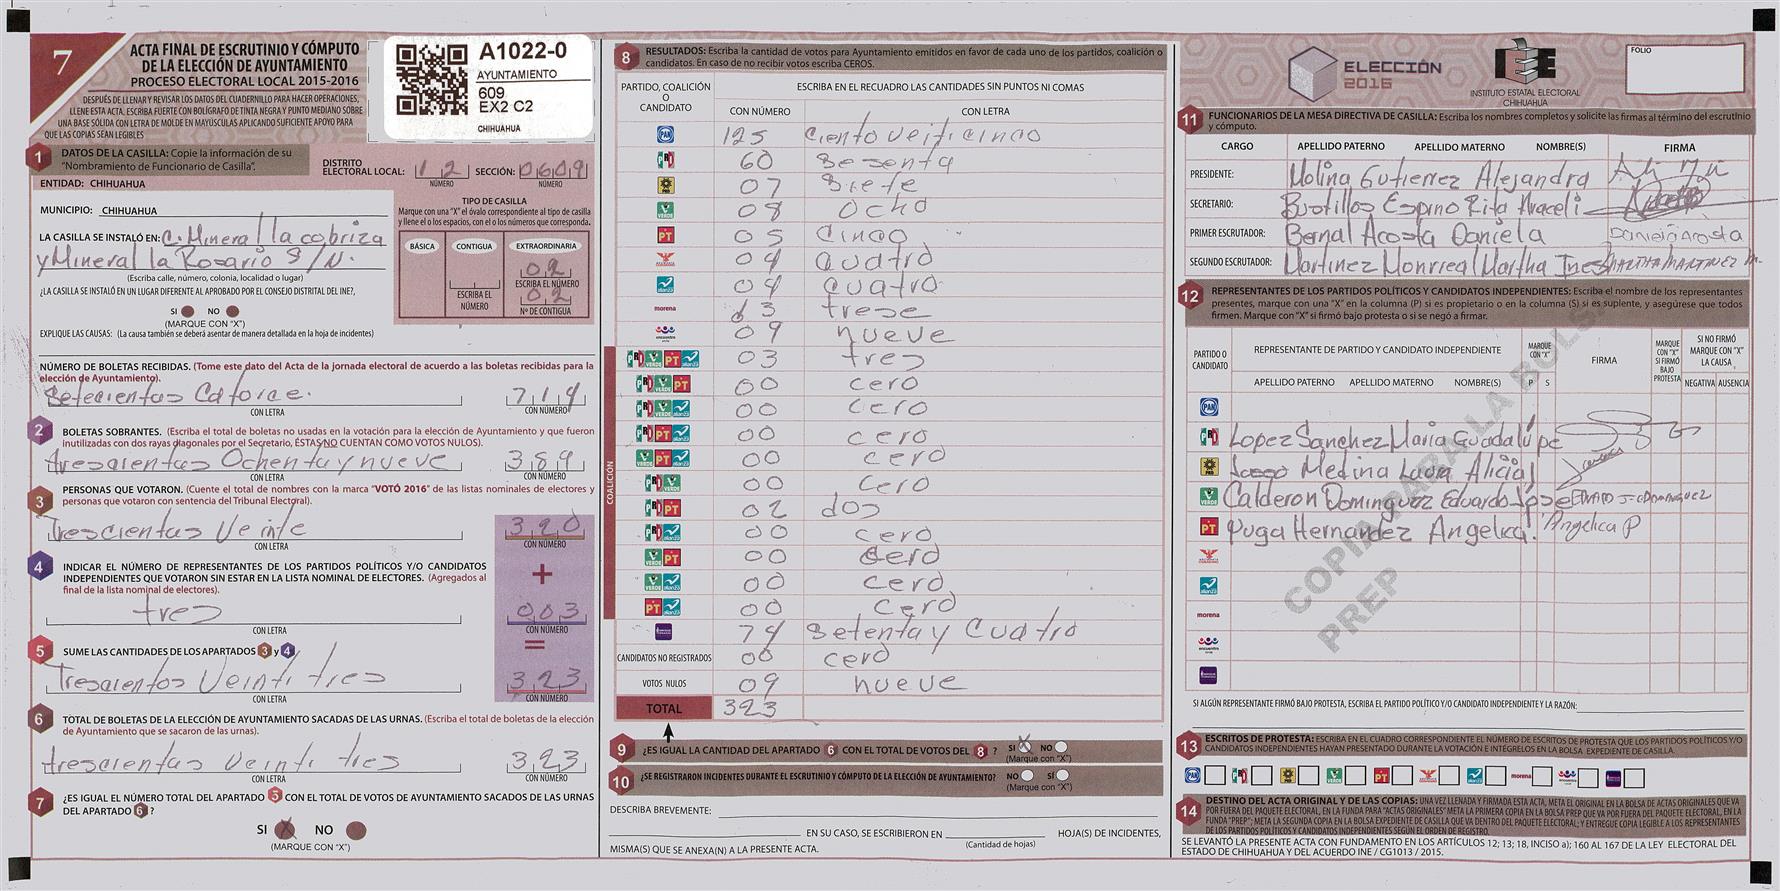 7
ACTA FINAL DE ESCRUTINIO Y CÓMPUTO
DE LA ELECCIÓN DE AYUNTAMIENTO
PROCESO ELECTORAL LOCAL 2015-2016
DESPUÉS DE LLENAR Y REVISAR LOS DATOS DEL CUADERNILLO PARA HACER OPERACIONES,
LLENE ESTA ACTA, ESCRIBA FUERTE CON BOLÍGRAFO DE TINTA NEGRA Y PUNTO MEDIANO SOBRE
UNA BASE SÓLIDA CON LETRA DE MOLDE EN MAYÚSCULAS APLICANDO SUFICIENTE APOYO PARA
QUE LAS COPIAS SEAN LEGIBLES
A1022-0
AYUNTAMIENTO
609
EX2 C2
CHIHUAHUA
1 DATOS DE LA CASILLA: Copie la información de su
"Nombramiento de Funcionario de Casilla".
DISTRITO ELECTORAL LOCAL: 12 SECCIÓN: 0609
NÚMERO NÚMERO
ENTIDAD: CHIHUAHUA
MUNICIPIO: CHIHUAHUA
LA CASILLA SE INSTALÓ EN: C. Mineral la cobriza
y Mineral la Rosario S/N.
(Escriba calle, número, colonia, localidad o lugar)
¿LA CASILLA SE INSTALÓ EN UN LUGAR DIFERENTE AL APROBADO POR EL CONSEJO DISTRITAL DEL INE?,
SI NO
(MARCAR CON "X")
EXPLIQUE LAS CAUSAS: (La causa también se deberá asentar de manera detallada en la hoja de incidentes)
TIPO DE CASILLA
Marque con una "X" el óvalo correspondiente al tipo de casilla
y llene el o los espacios, con el o los números que corresponda.
BÁSICA CONTIGUA EXTRAORDINARIA
02
ESCRIBA EL NÚMERO
ESCRIBA EL NÚMERO
02
Nº DE CONTIGUA
NÚMERO DE BOLETAS RECIBIDAS. (Tome este dato del Acta de la jornada electoral de acuerdo a las boletas recibidas para la
elección de Ayuntamiento).
Setecientas Catorce. 714
CON LETRA CON NÚMERO
2 BOLETAS SOBRANTES. (Escriba el total de boletas no usadas en la votación para la elección de Ayuntamiento y que fueron
inutilizadas con dos rayas diagonales por el Secretario, ÉSTAS NO CUENTAN COMO VOTOS NULOS).
trescientas Ochenta y nueve 389
CON LETRA CON NÚMERO
3 PERSONAS QUE VOTARON. (Cuente el total de nombres con la marca "VOTÓ 2016" de las listas nominales de electores y
personas que votaron con sentencia del Tribunal Electoral).
Trescientas Veinte 320
CON LETRA CON NÚMERO
+
4 INDICAR EL NÚMERO DE REPRESENTANTES DE LOS PARTIDOS POLÍTICOS Y/O CANDIDATOS
INDEPENDIENTES QUE VOTARON SIN ESTAR EN LA LISTA NOMINAL DE ELECTORES. (Agregados al
final de la lista nominal de electores).
tres 003
CON LETRA CON NÚMERO
=
5 SUME LAS CANTIDADES DE LOS APARTADOS 3 y 4
Trescientos Veinti tres 323
CON LETRA CON NÚMERO
6 TOTAL DE BOLETAS DE LA ELECCIÓN DE AYUNTAMIENTO SACADAS DE LAS URNAS. (Escriba el total de boletas de la elección
de Ayuntamiento que se sacaron de las urnas).
trescientas Veinti tres 323
CON LETRA CON NÚMERO
7 ¿ES IGUAL EL NÚMERO TOTAL DEL APARTADO 5 CON EL TOTAL DE VOTOS DE AYUNTAMIENTO SACADOS DE LAS URNAS
DEL APARTADO 6 ?
SI X NO
(MARCAR CON "X")
8 RESULTADOS: Escriba la cantidad de votos para Ayuntamiento emitidos en favor de cada uno de los partidos, coalición o
candidatos. En caso de no recibir votos escriba CEROS.
PARTIDO, COALICIÓN O CANDIDATO
ESCRIBA EN EL RECUADRO LAS CANTIDADES SIN PUNTOS NI COMAS
CON NÚMERO CON LETRA
PAN 125 Ciento veiticinco
PRI 60 Sesenta
PRD 07 Siete
VERDE 08 Ocho
PT 05 Cinco
04 Cuatro
alianza 04 Cuatro
morena 13 trese
encuentro 09 nueve
COALICIÓN
PRI VERDE PT alianza 03 tres
PRI VERDE PT 00 cero
PRI VERDE alianza 00 cero
PRI PT alianza 00 cero
VERDE PT alianza 00 cero
PRI VERDE 00 cero
PRI PT 02 dos
PRI alianza 00 cero
VERDE PT 00 cero
VERDE alianza 00 cero
PT alianza 00 cero
74 Setenta y Cuatro
CANDIDATOS NO REGISTRADOS 00 cero
VOTOS NULOS 09 nueve
TOTAL 323
9 ¿ES IGUAL LA CANTIDAD DEL APARTADO 6 CON EL TOTAL DE VOTOS DEL 8 ? SI X NO
(Marque con "X")
10 ¿SE REGISTRARON INCIDENTES DURANTE EL ESCRUTINIO Y CÓMPUTO DE LA ELECCIÓN DE AYUNTAMIENTO? NO SÍ
(Marque con "X")
DESCRIBA BREVEMENTE:
EN SU CASO, SE ESCRIBIERON EN HOJA(S) DE INCIDENTES,
(Cantidad de hojas)
MISMA(S) QUE SE ANEXA(N) A LA PRESENTE ACTA.
ELECCIÓN
2016
IEE
INSTITUTO ESTATAL ELECTORAL
CHIHUAHUA
FOLIO
11 FUNCIONARIOS DE LA MESA DIRECTIVA DE CASILLA: Escriba los nombres completos y solicite las firmas al término del escrutinio
y cómputo.
CARGO APELLIDO PATERNO APELLIDO MATERNO NOMBRE(S) FIRMA
PRESIDENTE: Molina Gutierrez Alejandra
SECRETARIO: Bustillos Espino Rita Araceli
PRIMER ESCRUTADOR: Bernal Acosta Daniela Daniela Acosta
SEGUNDO ESCRUTADOR: Martinez Monrreal Martha Ines MARTHA MARTINEZ M.
12 REPRESENTANTES DE LOS PARTIDOS POLÍTICOS Y CANDIDATOS INDEPENDIENTES: Escriba el nombre de los representantes
presentes, marque con una "X" en la columna (P) si es propietario o en la columna (S) si es suplente, y asegúrese que todos
firmen. Marque con "X" si firmó bajo protesta o si se negó a firmar.
PARTIDO O CANDIDATO
REPRESENTANTE DE PARTIDO Y CANDIDATO INDEPENDIENTE
MARQUE CON "X"
FIRMA
MARQUE CON "X" SI FIRMÓ BAJO PROTESTA
SI NO FIRMÓ MARQUE CON "X" LA CAUSA
APELLIDO PATERNO APELLIDO MATERNO NOMBRE(S) P S
NEGATIVA AUSENCIA
PAN
PRI Lopez Sanchez Maria Guadalupe
PRD Medina Laura Alicia
VERDE Calderon Dominguez Eduardo José
PT Puga Hernandez Angelica. Angelica P
alianza
morena
encuentro
COPIA PARA LA BOLSA
PREP
SI ALGÚN REPRESENTANTE FIRMÓ BAJO PROTESTA, ESCRIBA EL PARTIDO POLÍTICO Y/O CANDIDATO INDEPENDIENTE Y LA RAZÓN:
13 ESCRITOS DE PROTESTA: ESCRIBA EN EL CUADRO CORRESPONDIENTE EL NÚMERO DE ESCRITOS DE PROTESTA QUE LOS PARTIDOS POLÍTICOS Y/O
CANDIDATOS INDEPENDIENTES HAYAN PRESENTADO DURANTE LA VOTACIÓN E INTÉGRELOS EN LA BOLSA EXPEDIENTE DE CASILLA.
PAN PRI PRD VERDE PT alianza morena encuentro
14 DESTINO DEL ACTA ORIGINAL Y DE LAS COPIAS: UNA VEZ LLENADA Y FIRMADA ESTA ACTA, META EL ORIGINAL EN LA BOLSA DE ACTAS ORIGINALES QUE VA
POR FUERA DEL PAQUETE ELECTORAL, EN LA FUNDA PARA "ACTAS ORIGINALES" META LA PRIMERA COPIA EN LA BOLSA PREP QUE VA POR FUERA DEL PAQUETE ELECTORAL, EN LA
FUNDA "PREP"; META LA SEGUNDA COPIA EN LA BOLSA EXPEDIENTE DE CASILLA QUE VA DENTRO DEL PAQUETE ELECTORAL; Y ENTREGUE COPIA LEGIBLE A LOS REPRESENTANTES
DE LOS PARTIDOS POLÍTICOS Y CANDIDATOS INDEPENDIENTES SEGÚN EL ORDEN DE REGISTRO.
SE LEVANTÓ LA PRESENTE ACTA CON FUNDAMENTO EN LOS ARTÍCULOS 12; 13; 18, INCISO a); 160 AL 167 DE LA LEY ELECTORAL DEL
ESTADO DE CHIHUAHUA Y DEL ACUERDO INE / CG1013 / 2015.